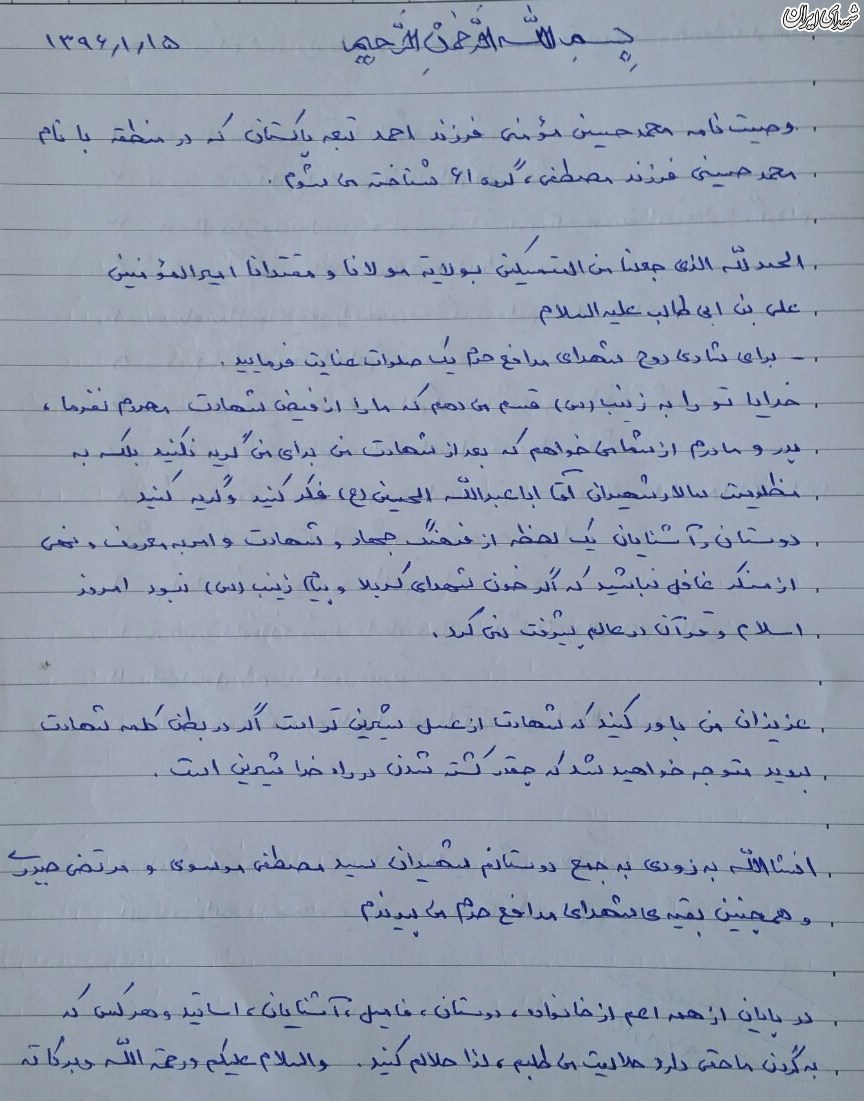 شهدای ایران
بسم الله الرحمن الرحیم ۱۳۹۶/۱/۱۵
وصیت نامه محمدحسین مؤمنی فرزند احمد تبعه پاکستان که در منطقه با نام
محمد حسینی فرزند مصطفی، گروه ۶۱ شناخته می شوم.
الحمدلله الذی جعلنا من المتمسکین بولایة مولانا و مقتدانا امیرالمؤمنین
علی بن ابی طالب علیه السلام
- برای شادی روح شهدای مدافع حرم یک صلوات عنایت فرمایید.
خدایا تو را به زینب (س) قسم می دهم که ما را از فیض شهادت محروم نفرما،
پدر و مادرم از شما می خواهم که بعد از شهادت من برای من گریه نکنید بلکه به
مظلومیت سالار شهیدان آقا اباعبدالله الحسین (ع) فکر کنید و گریه کنید
دوستان و آشنایان یک لحظه از فرهنگ جهاد و شهادت و امر به معروف و نهی
از منکر غافل نباشید که اگر خون شهدای کربلا و پیام زینب (س) نبود امروز
اسلام و قرآن در عالم پیشرفت نمی کرد.
عزیزان من باور کنید که شهادت از عسل شیرین تر است اگر در بطن کلمه شهادت
بروید متوجه خواهید شد که چقدر کشته شدن در راه خدا شیرین است.
انشاالله به زودی به جمع دوستانم شهیدان سید مصطفی موسوی و مرتضی حیدری
و همچنین بقیه ی شهدای مدافع حرم می پیوندم
در پایان از همه اعم از خانواده، دوستان، فامیل، آشنایان، اساتید و هر کس که
به گردن ما حقی دارد حلالیت می طلبم، لذا حلالم کنید. والسلام علیکم و رحمة الله و برکاته